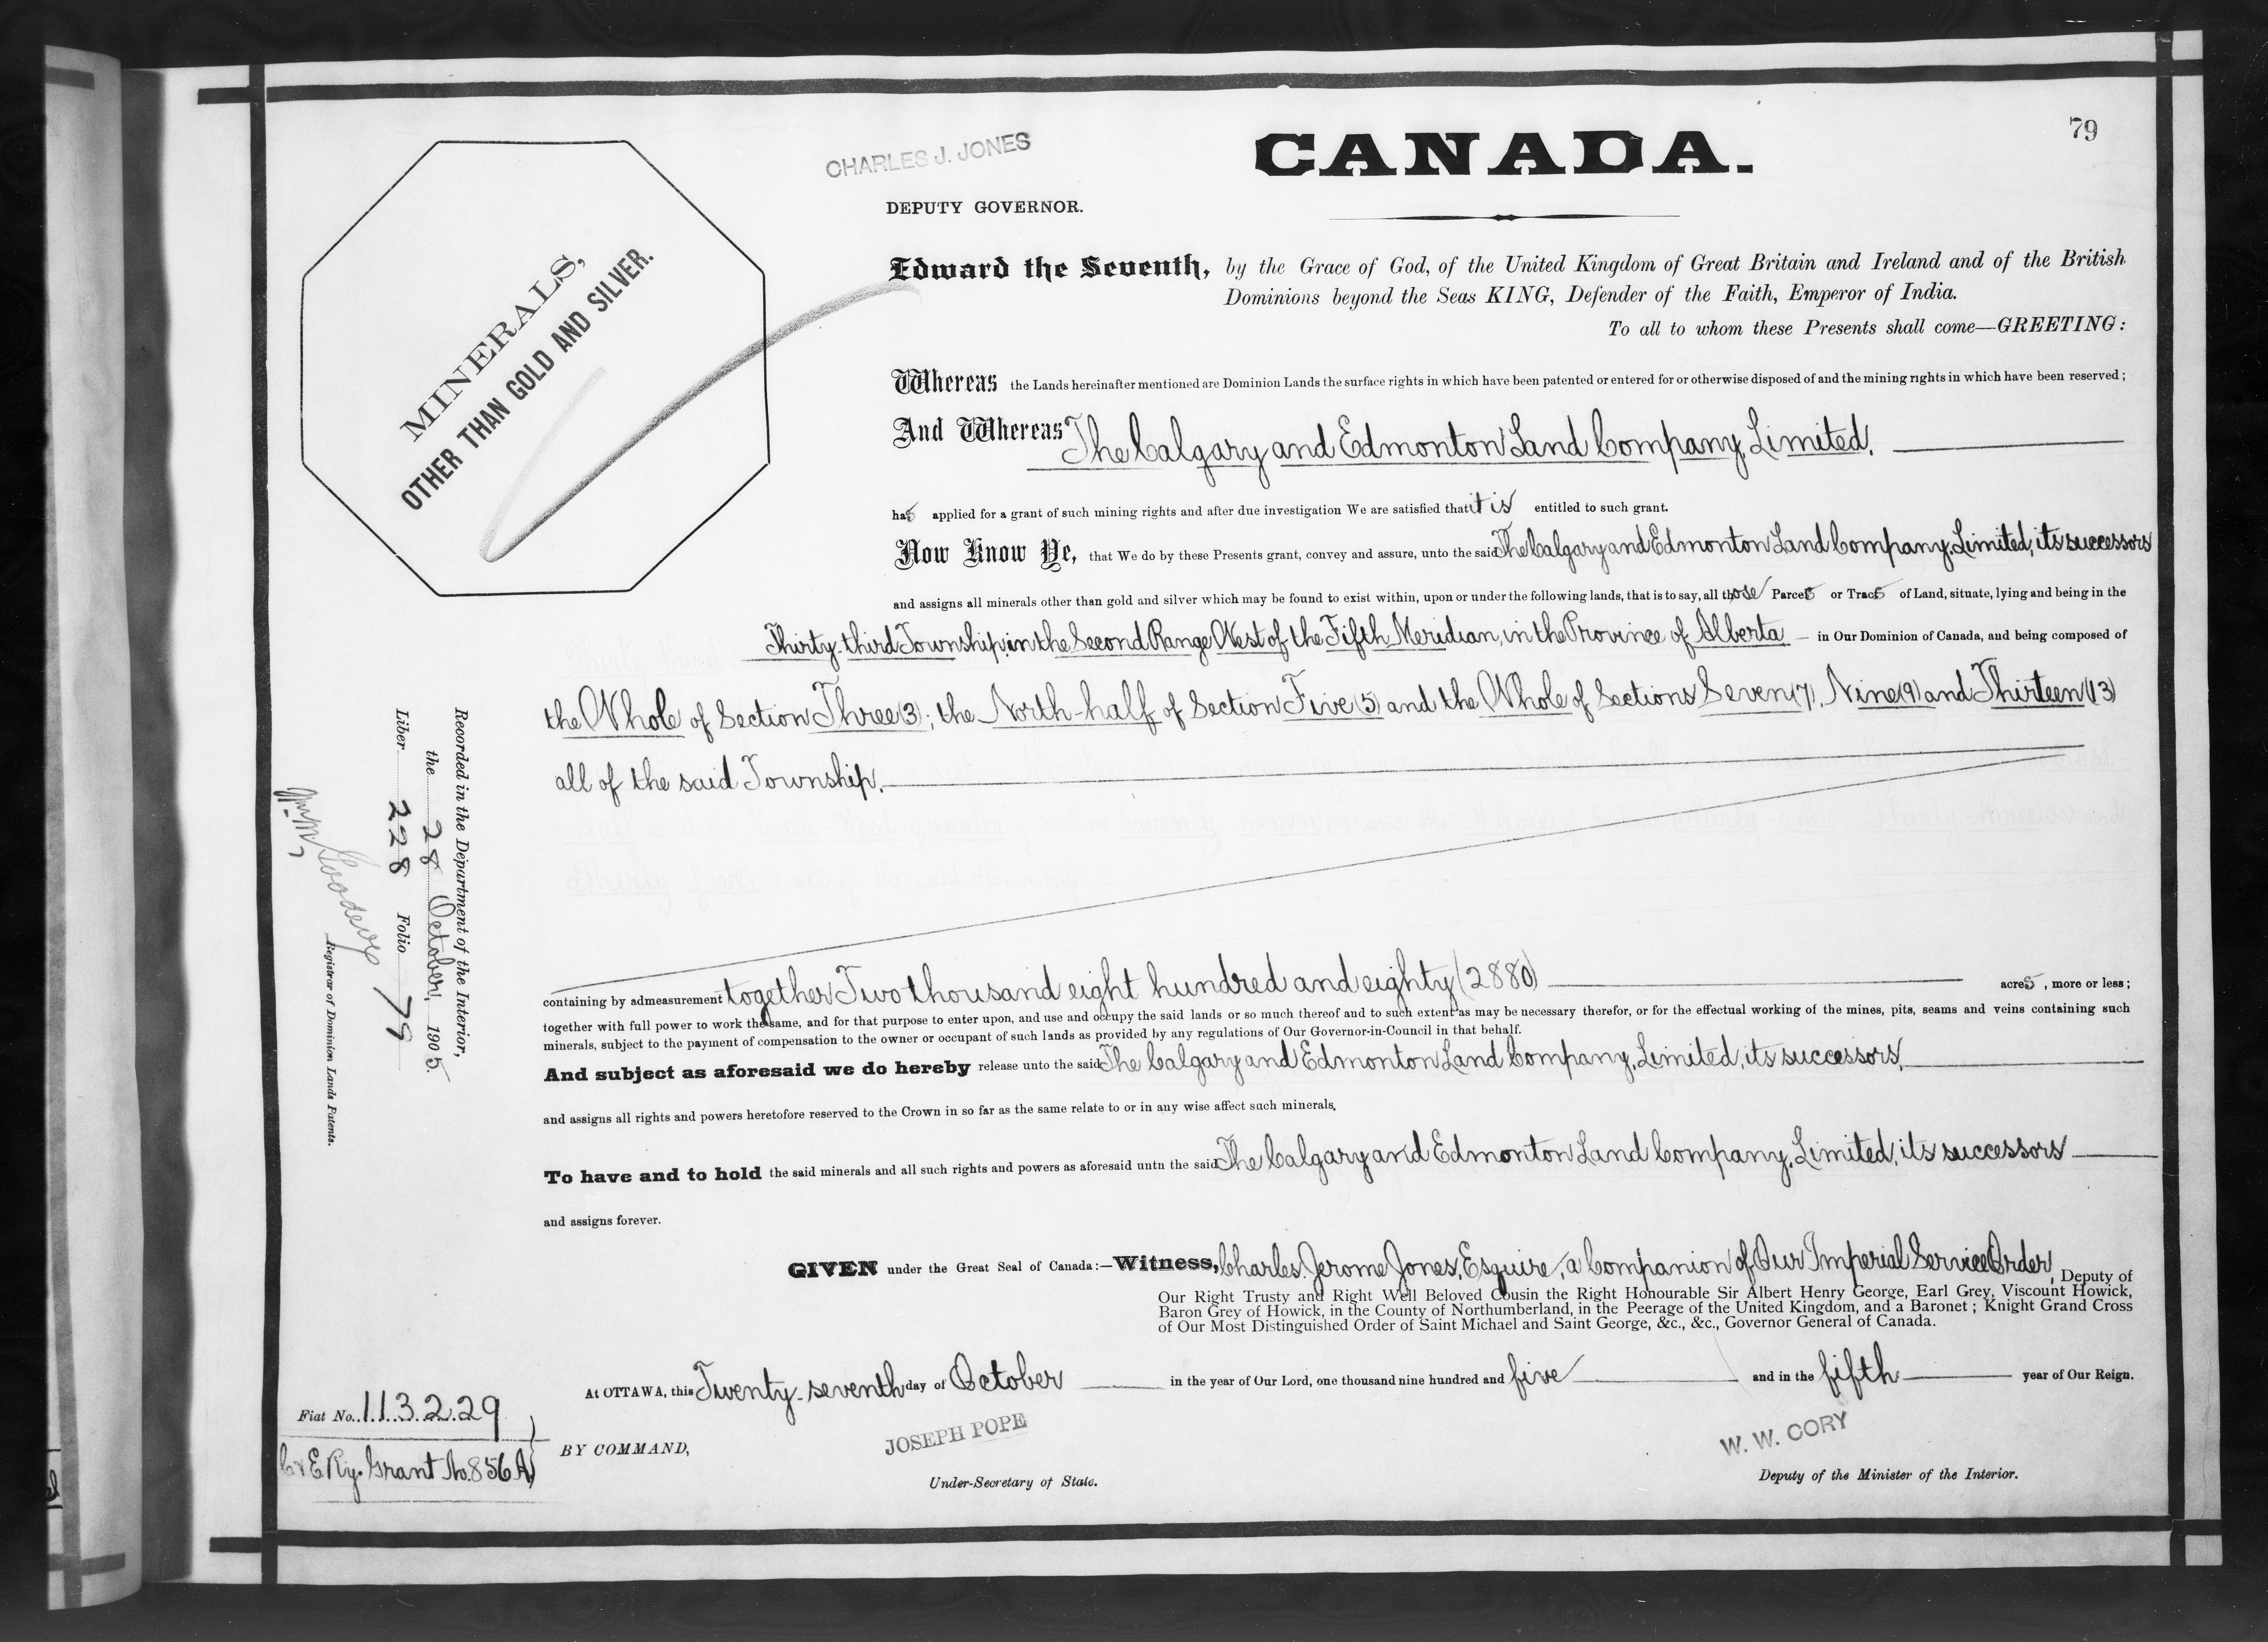 79
CHARLES J. JONES
CANADA.
DEPUTY GOVERNOR.
MINERALS,
OTHER THAN GOLD AND SILVER.
Edward the Seventh, by the Grace of God, of the United Kingdom of Great Britain and Ireland and of the British
Dominions beyond the Seas KING, Defender of the Faith, Emperor of India.
To all to whom these Presents shall come—GREETING:
Whereas the Lands hereinafter mentioned are Dominion Lands the surface rights in which have been patented or entered for or otherwise disposed of and the mining rights in which have been reserved;
And Whereas The Calgary and Edmonton Land Company, Limited,
has applied for a grant of such mining rights and after due investigation We are satisfied that it is entitled to such grant.
Now Know Ye, that We do by these Presents grant, convey and assure, unto the said The Calgary and Edmonton Land Company, Limited, its successors
and assigns all minerals other than gold and silver which may be found to exist within, upon or under the following lands, that is to say, all those Parcels or Tracts of Land, situate, lying and being in the
Thirty-third Township, in the Second Range West of the Fifth Meridian, in the Province of Alberta in Our Dominion of Canada, and being composed of
the Whole of Section Three (3); the North-half of Section Five (5) and the Whole of Sections Seven (7), Nine (9) and Thirteen (13)
all of the said Township.
containing by admeasurement together Two thousand eight hundred and eighty (2880) acres, more or less;
together with full power to work the same, and for that purpose to enter upon, and use and occupy the said lands or so much thereof and to such extent as may be necessary therefor, or for the effectual working of the mines, pits, seams and veins containing such
minerals, subject to the payment of compensation to the owner or occupant of such lands as provided by any regulations of Our Governor-in-Council in that behalf.
And subject as aforesaid we do hereby release unto the said The Calgary and Edmonton Land Company, Limited, its successors,
and assigns all rights and powers heretofore reserved to the Crown in so far as the same relate to or in any wise affect such minerals.
To have and to hold the said minerals and all such rights and powers as aforesaid untn the said The Calgary and Edmonton Land Company, Limited, its successors
and assigns forever.
GIVEN under the Great Seal of Canada:—Witness, Charles Jerome Jones, Esquire, a Companion of Our Imperial Service Order, Deputy of
Our Right Trusty and Right Well Beloved Cousin the Right Honourable Sir Albert Henry George, Earl Grey, Viscount Howick,
Baron Grey of Howick, in the County of Northumberland, in the Peerage of the United Kingdom, and a Baronet; Knight Grand Cross
of Our Most Distinguished Order of Saint Michael and Saint George, &c., &c., Governor General of Canada.
At OTTAWA, this Twenty-seventh day of October in the year of Our Lord, one thousand nine hundred and five and in the fifth year of Our Reign.
BY COMMAND,
JOSEPH POPE
Under-Secretary of State.
W. W. CORY
Deputy of the Minister of the Interior.
Recorded in the Department of the Interior,
the 28 October, 1905.
Liber 228 Folio 79
Wm M Goodeve
Registrar of Dominion Lands Patents.
Fiat No. 113229
C & E. Ry. Grant No. 856 A